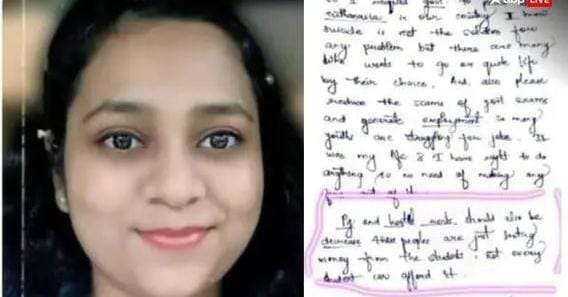 abp LIVE
So I request govt to
euthanasia in our country I know
suicide is not the solution for
any problem but there are many
who wants to go or quit life
by their choice. And also please
reduce the scams of govt exams
and generate employment so many
youths are struggling for jobs. It
was my life & I have right to do
anything so no need of making any
out of it.
Pg and hostel rents should also be
decrease these peoples are just looting
money from the students. Not every
student can afford it.